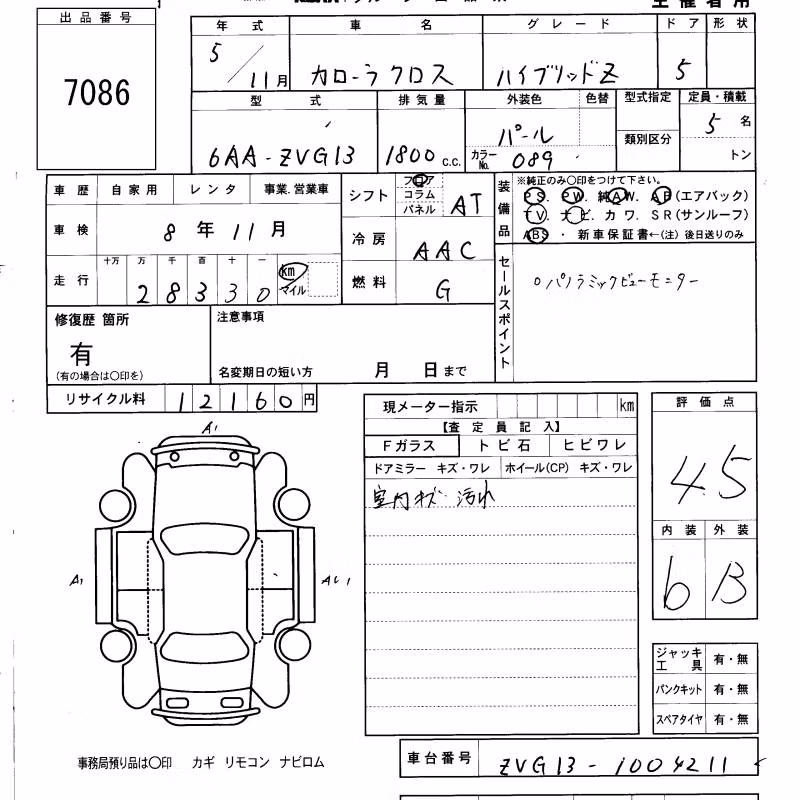 出品番号
7086
年式 車名 グレード ドア 形状
5/11月 カローラクロス ハイブリッドZ 5
型式 排気量 外装色 色替 型式指定 定員・積載
6AA-ZVG13 1800 c.c. パール 5名
カラーNo. 089 類別区分 トン
車歴 自家用 レンタ 事業.営業車
車検 8年11月
走行 十万 万 千 百 十 一 km
28330 マイル
シフト フロア コラム パネル AT
冷房 AAC
燃料 G
装備品
※純正のみ〇印をつけて下さい。
PS. PW. 純AW. AB(エアバック)
TV. ナビ. カワ. SR(サンルーフ)
ABS ・ 新車保証書←(注)後日送りのみ
セールスポイント
○パノラミックビューモニター
修復歴 箇所
有
(有の場合は〇印を)
注意事項
名変期日の短い方 月 日まで
リサイクル料 12160円
現メーター指示 km
【査定員記入】
Fガラス トビ石 ヒビワレ
ドアミラー キズ・ワレ ホイール(CP) キズ・ワレ
室内キズ 汚れ
評価点
4.5
内装 外装
6 B
A1
A1
ジャッキ工具 有・無
パンクキット 有・無
スペアタイヤ 有・無
事務局預り品は〇印 カギ リモコン ナビロム
車台番号 ZVG13-1004211